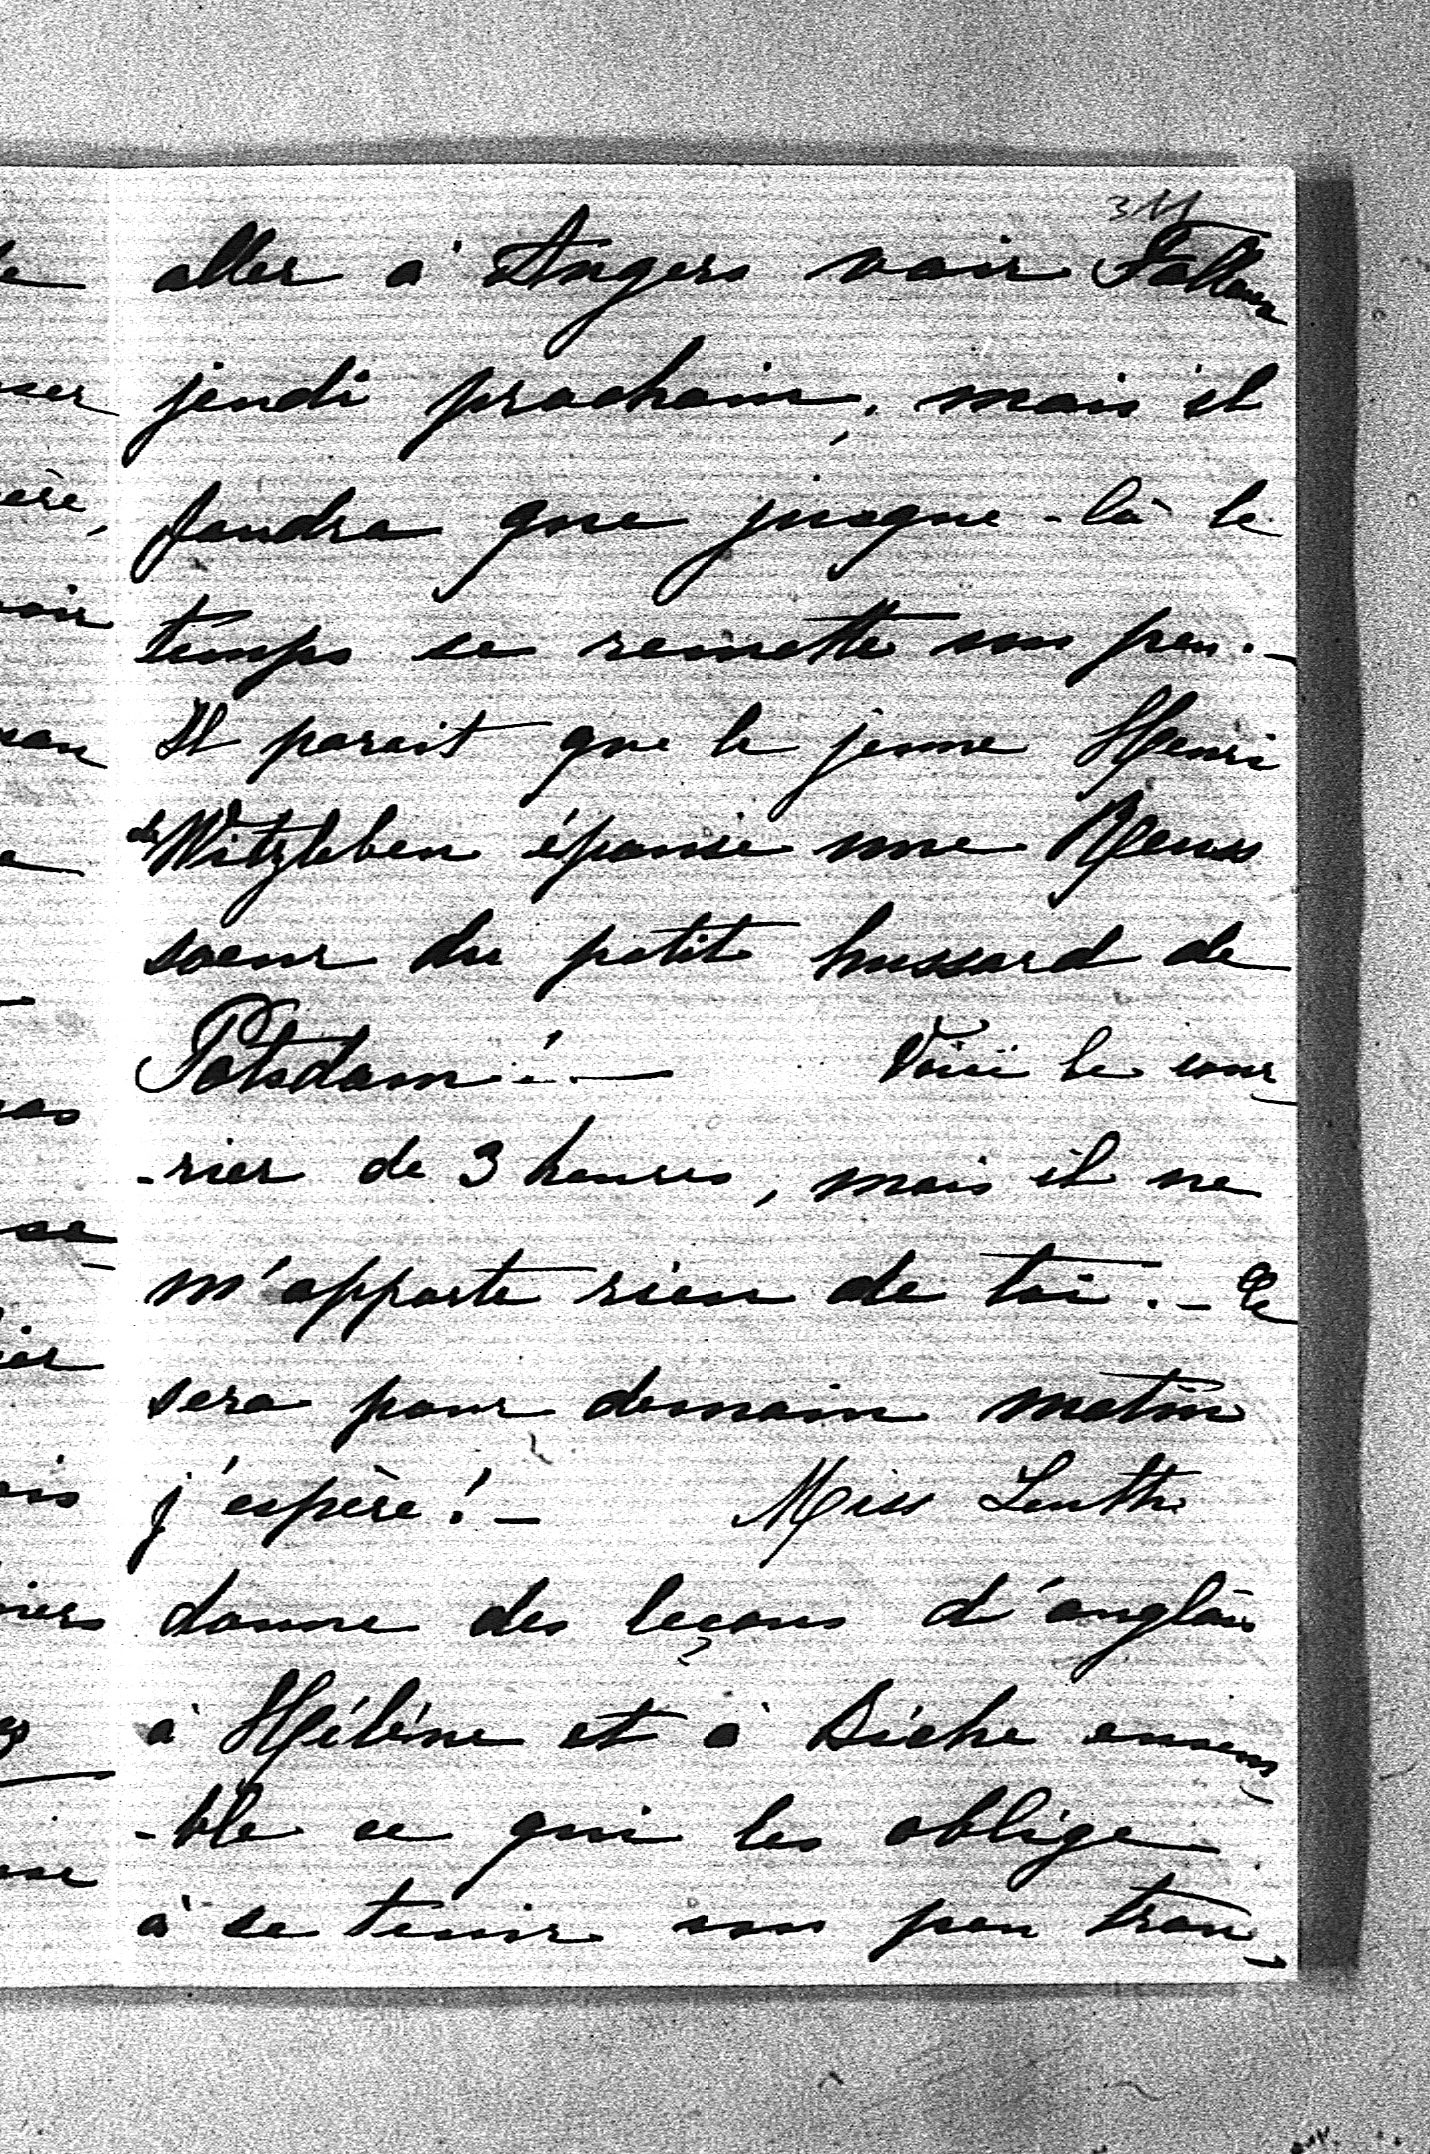 aller à Angers voir Falloux
jeudi prochain, mais il
faudra que jusque-là le
temps se remette un peu. -
Il parait que le jeune Henri
de Witzleben épouse une Reuss
soeur du petit hussard de
Potsdam! - Voici le cour
-rier de 3 heures, mais il ne
m'apporte rien de toi. - Ce
sera pour demain matin
j'espère! - Miss
donne des leçons d'anglais
à Hélène et à Biche ensem
-ble ce qui les oblige
à se tenir un peu tran-